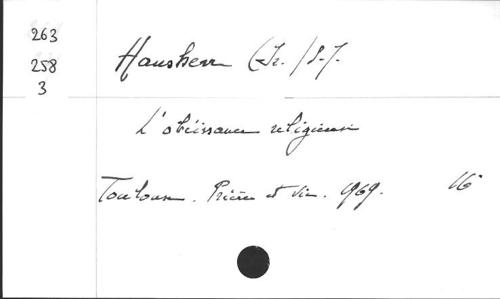 263
258
3
Hausherr (Ir.) S.J.
L'obéissance religieuse
Toulouse. Prière et vie. 1969. 16°